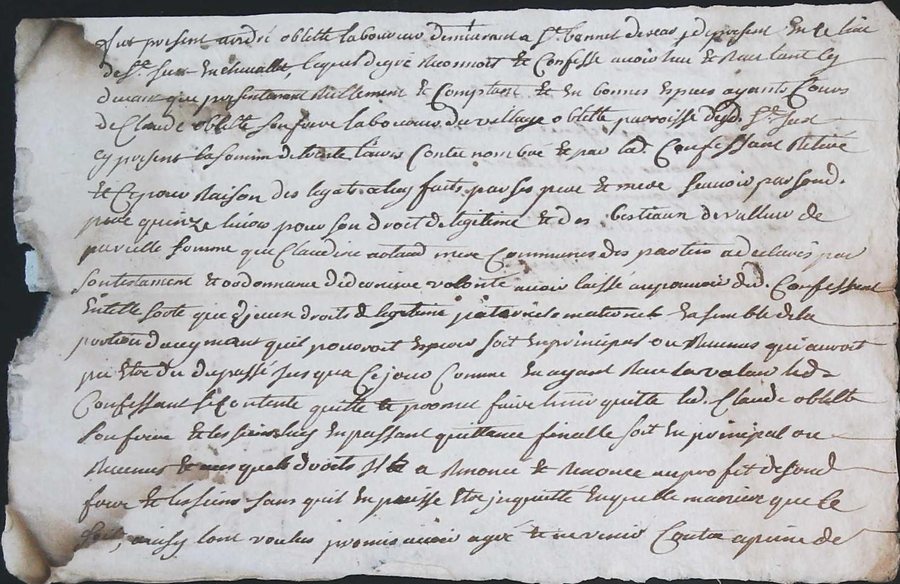 fut present andré oblette laboureur demeurant a St. bonnet de present en ce lieu
de St. Just en chevallet, lequel de gré Reconnoit & Confesse avoir heu & Receu tant cy
devant que presentement Reellement & Comptant & en bonnes espèces ayants Cours
de Claude oblette son frere laboureur du village oblette parroisse dud. St. Just
cy present la somme de trente livres Contee nombree & par led. Confessant Retiré
& Ce pour Raison des legats a luy faits par ses pere & mere Scavoir par sond.
pere quinze livres pour son droit de legitime & des bestiaux de valleur de
pareille somme que Claudine mere Commune des parties a declaré par
son testament & ordonnance de derniere volonté avoir laissé au pouvoir dud. Confessant
en telle sorte que droits de legitime paternels maternels ensemble de la
portion d'augment qu'il pouvoit esperer soit en principal ou Revenus qui auroit
pu etre du du passé jusqua Ce jour Comme en ayant Receu la valeur led.
Confessant Se Contente quitte & promet faire tenir quitte led. Claude oblette
son frere & les siens luy en passant quittance finalle soit en principal ou
Revenus & ausquels droits Il a Renoncé & Renonce au profit de sond
frere & les siens sans quil en puisse etre inquietté en quelle maniere que Ce
soit, ainsy l'ont voulus promis avoir agré & ne venir Contre a peine de